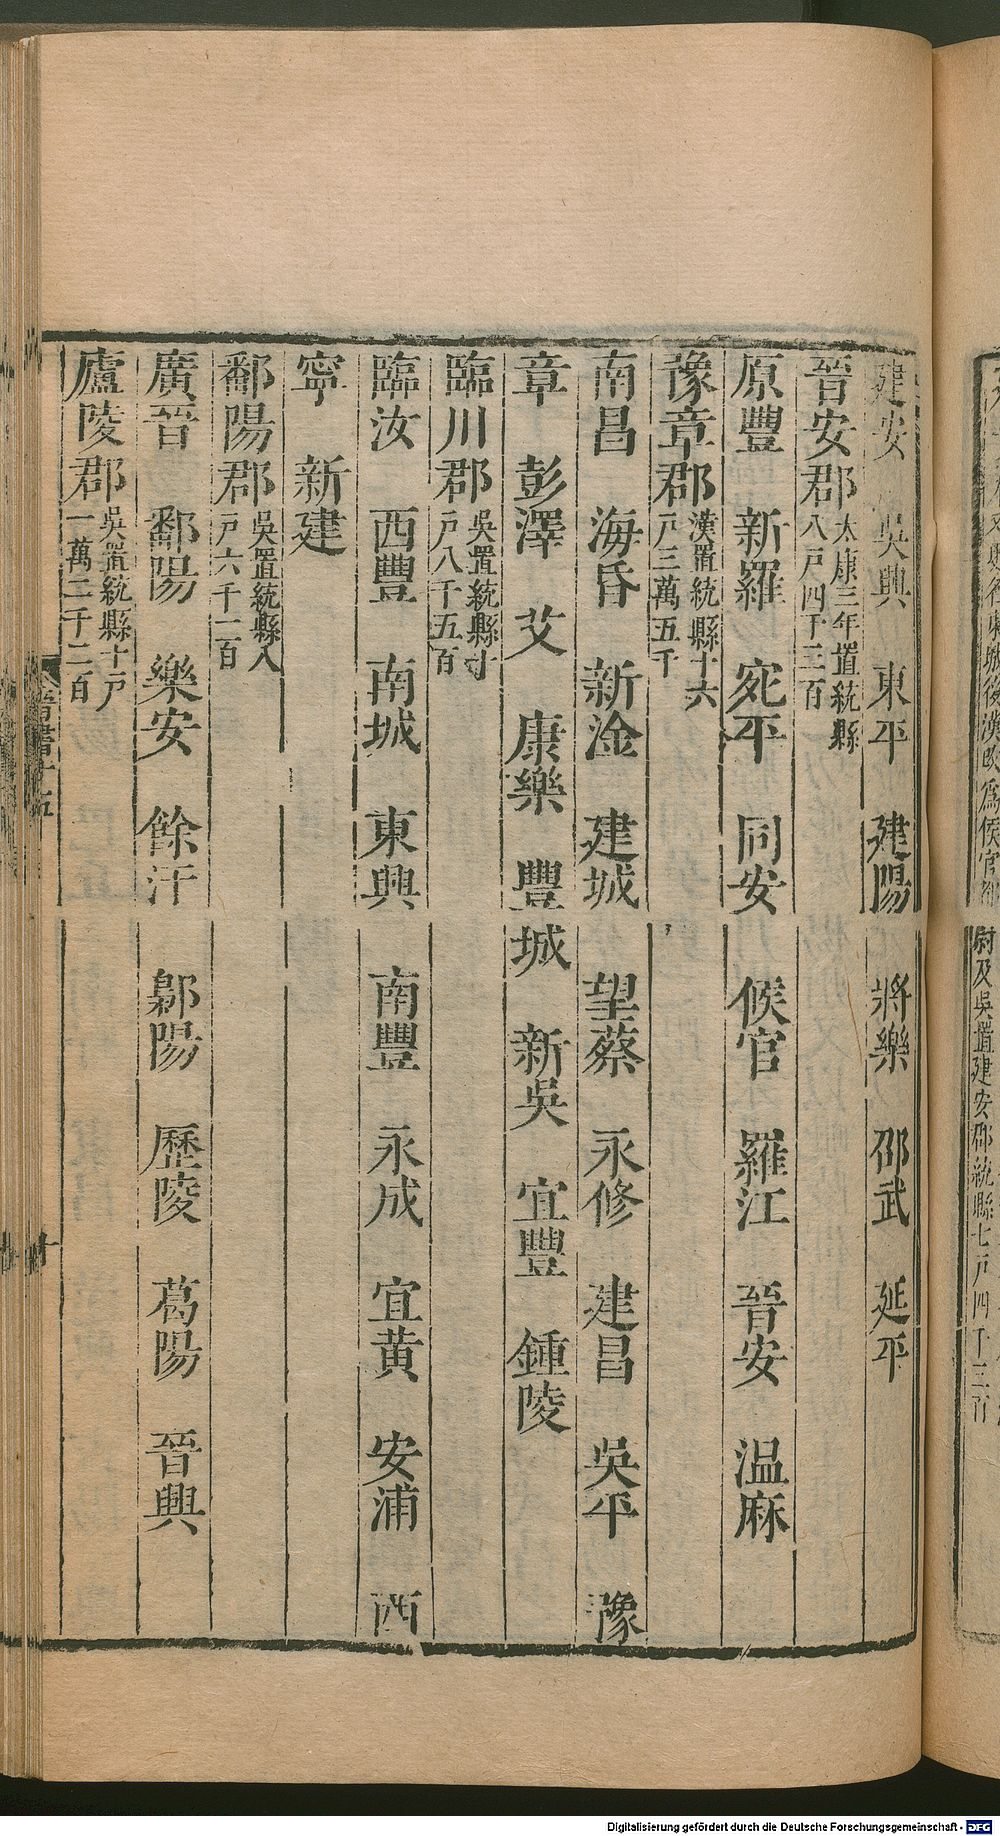 故及吳置建安郡統縣七戶四千三百
建安　吳興　東平　建陽　將樂　邵武　延平
晉安郡太康三年置統縣
八戶四千三百
原豐　新羅　宛平　同安　候官　羅江　晉安　温麻
豫章郡漢置統縣十六
戶三萬五千
南昌　海昏　新淦　建城　望蔡　永修　建昌　吳平　豫
章　彭澤　艾　康樂　豐城　新吳　宜豐　鍾陵
臨川郡吳置統縣十
戶八千五百
臨汝　西豐　南城　東興　南豐　永成　宜黄　安浦　西
寧　新建
鄱陽郡吳置統縣八
戶六千一百
廣晉　鄱陽　樂安　餘汗　鄡陽　歷陵　葛陽　晉興
廬陵郡吳置統縣十戶
一萬二千二百
晉書十五
十
Digitalisierung gefördert durch die Deutsche Forschungsgemeinschaft - DFG